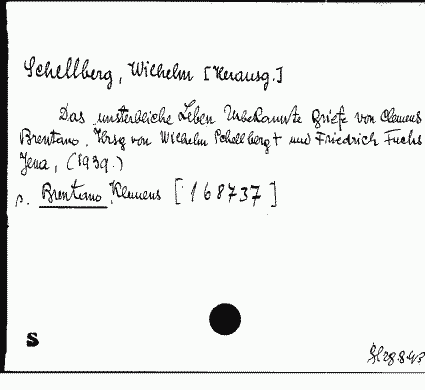 Schellberg, Wilhelm [Herausg.]
Das unsterbliche Leben Unbekannte Briefe von Clemens
Brentano. Hrsg von Wilhelm Schellberg † und Friedrich Fuchs
Jena, (1939.)
s. Brentano Klemens [168737]
S